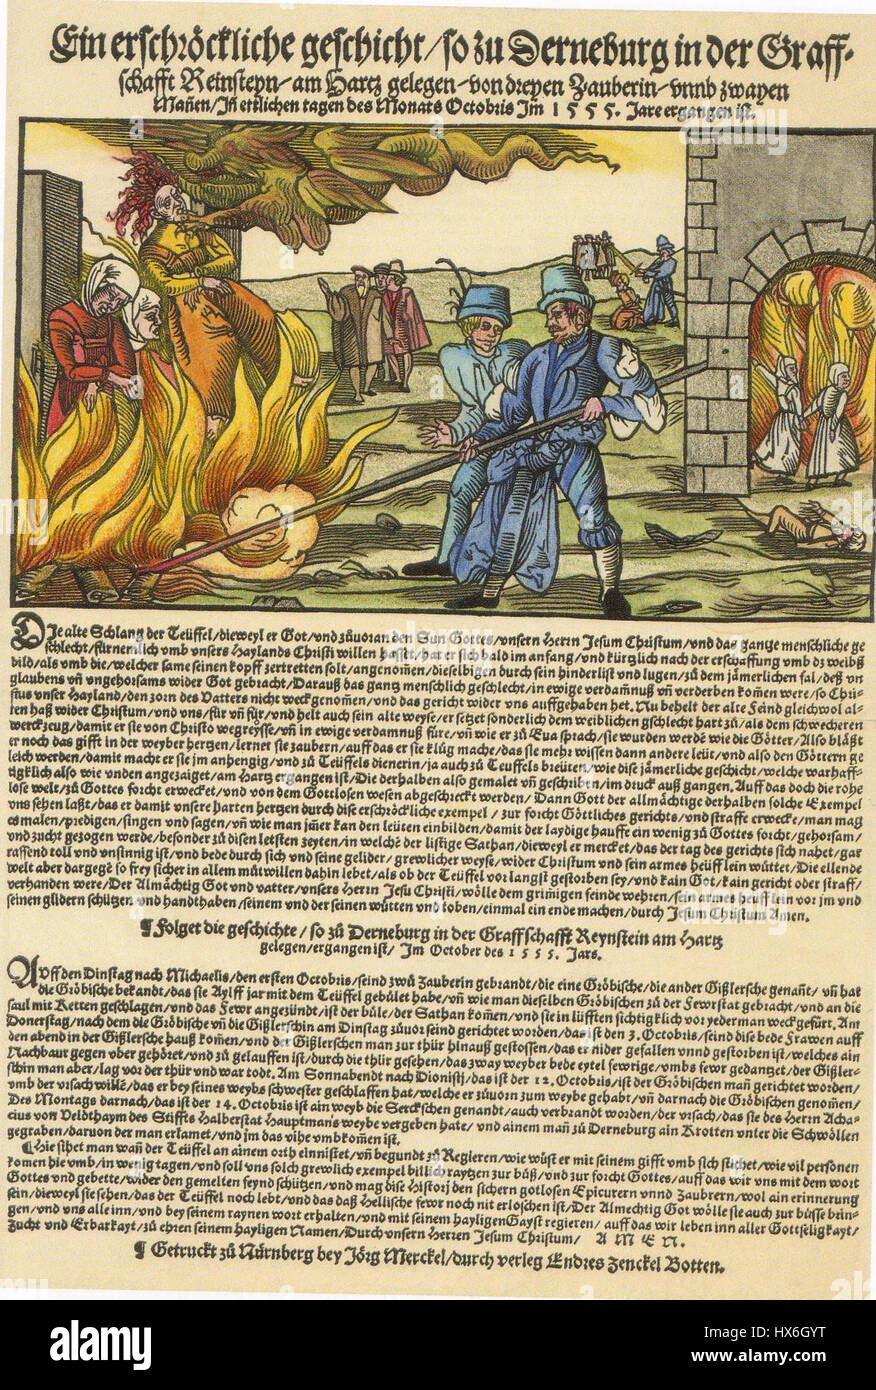 Ein erschröckliche geschicht/so zu Derneburg in der Graff-
schafft Reinsteyn/am Hartz gelegen/von dreyen Zauberin/vnnd zwayen
Mañen/Jñ etlichen tagen des Monats Octobris Jm 1555. Jare ergangen ist.
DJe alte Schlang der Teüffel/dieweyl er Got/vnd zůuoran den Sun Gottes/vnsern Herrn Jesum Christum/vnd das gantze menschliche ge
schlecht/fürnemlich vmb vnsers Haylands Christi willen hasset/hat er sich bald im anfang/vnd kürtzlich nach der erschaffung vmb dz weibß
bild/als vmb die/welcher same seinen kopff zertretten solt/angenom̃en/dieselbigen durch sein hinderlist vnd lugen/zů dem jämerlichen fal/deß vn
glaubens vñ vngehorsams wider Got gebracht/Darauß das gantz menschlich geschlecht/in ewige verdam̃nuß vñ verderben kom̃en were/so Chri-
stus vnser Hayland/den zorn des Vatters nicht weckgenom̃en/vnd das gericht wider vns auffgehaben het. Nu behelt der alte Feind gleichwol al-
ten haß wider Christum/vnd vns/für vñ für/vnd helt auch sein alte weyse/er setzet sonderlich dem weiblichen gschlecht hart zů/als dem schwecheren
werckzeug/damit er sie von Christo wegreysse/vñ in ewige verdamnuß füre/vñ wie er zů Eua sprach/sie wurden werdē wie die Götter/Also bläßt
er noch das gifft in der weyber hertzen/lernet sie zaubern/auff das er sie klůg mache/das sie mehr wissen dann andere leüt/vnd also den Göttern ge
leich werden/damit macht er sie im anhengig/vnd zů Teüffels dienerin/ja auch zů Teuffels breüten/wie dise jämerliche geschicht/welche warhaff-
tigklich also wie vnden angezaiget/am Hartz ergangen ist/Die derhalben also gemalet vñ geschriben/im druck auß gangen. Auff das doch die rohe
lose welt/zů Gottes forcht erwecket/vnd von dem Gottlosen wesen abgeschreckt werden/Dann Gott der allmächtige derhalben solche Exempel
vns sehen laßt/das er damit vnsere harten hertzen durch dise erschröckliche exempel/zur forcht Göttliches gerichts/vnd straffe erwecke/man mag
es malen/predigen/singen vnd sagen/vñ wie man jm̃er kan den leüten einbilden/damit der laydige hauffe ein wenig zů Gottes forcht/gehorsam/
vnd zucht gezogen werde/besonder zů disen letsten zeyten/in welchē der listige Sathan/dieweyl er mercket/das der tag des gerichts sich nahet/gar
rassend toll vnd vnsinnig ist/vnd bede durch sich vnd seine gelider/grewlicher weyse/wider Christum vnd sein armes heüfflein wüttet/Die ellende
welt aber dargegē so frey sicher in allem můtwillen dahin lebet/als ob der Teüffel vor langst gestorben sey/vnd kain Got/kain gericht oder straff/
verhanden were/Der Almächtig Got vnd vatter/vnsers Herrn Jesu Christi/wölle dem grim̃igen feinde wehren/sein armes heüfflein vor jm vnd
seinen glidern schützen/vnd handthaben/seinem vnd der seinen wütten vnd toben/einmal ein ende machen/durch Jesum Christum Amen.
¶ Folget die geschichte/so zů Derneburg in der Graffschafft Reynstein am Hartz
gelegen/ergangen ist/Jm October des 1555. Jars.
AVff den Dinstag nach Michaelis/den ersten Octobris/seind zwů Zauberin gebrandt/die eine Gröbische/die ander Gißlersche genañt/vñ hat
die Gröbische bekandt/das sie Aylff jar mit dem Teüffel gebůlet habe/vñ wie man dieselben Gröbischen zů der Fewrstat gebracht/vnd an die
saul mit Ketten geschlagen/vnd das Fewr angezündt/ist der bůle/der Sathan kom̃en/vnd sie in lüfften sichtigklich vor yederman weckgefürt. Am
Donerstag/nach dem die Gröbische vñ die Gißlerschin am Dinstag zůuor seind gerichtet worden/das ist den 3. Octobris/seind dise bede Frawen auff
den abend in der Gißlersche hauß kom̃en/vnd der Gißlerschen man zur thür hinauß gestossen/das er nider gefallen vnnd gestorben ist/welches ain
Nachbaur gegen vber gehöret/vnd zů gelauffen ist/durch die thür gesehen/das zway weyber bede eytel fewrige/vmbs fewr gedanzet/der Gißler-
schin man aber/lag vor der thür vnd war todt. Am Sonnabendt nach Dionisij/das ist der 12. Octobris/ist der Gröbischen mañ gerichtet worden/
vmb der vrsach willē/das er bey seines weybs schwester geschlaffen hat/welche er zůuorn zum weybe gehabt/vñ darnach die Gröbischen genom̃en/
Des Montags darnach/das ist der 14. Octobris ist ain weyb die Serckschen genandt/auch verbrandt worden/der vrsach/das sie des Herrn Acha-
cius von Veldthaym des Stiffts Halberstat Hauptmans weybe vergeben hate/vnd ainem mañ zů Derneburg ain Krotten vnter die Schwöllen
gegraben/dauon der man erlamet/vnd jm das vihe vmbkom̃en ist.
¶ Hie sihet man wañ der Teüffel an ainem orth einnistet/vñ begundt zů Regieren/wie wüst er mit seinem gifft vmb sich stichet/wie vil personen
komen hie vmb/in wenig tagen/vnd soll vns solch grewlich exempel billich raytzen zur bůß/vnd zur forcht Gottes/auff das wir vns mit dem wort
Gottes vnd gebette/wider den gemelten feynd schützen/vnd mag dise Historj den sichern gotlosen Epicurern vnnd Zaubrern/wol ain erinnerung
sein/dieweyl sie sehen/das der Teüffel noch lebt/vnd das daß Hellische fewr noch nit erloschen ist/Der Almechtig Got wölle sie auch zur bůsse brin-
gen/vnd vns alle inn/vnd bey seinem raynen wort erhalten/vnd mit seinem hayligen Gayst regieren/auff das wir leben inn aller Gottseligkayt/
Zucht vnd Erbarkayt/zů ehren seinem hayligen Namen/Durch vnsern Herren Jesum Christum/ A M E N.
¶ Getruckt zů Nürnberg bey Jörg Merckel/durch verleg Endres Zenckel Botten.
alamy stock photo
HX6GYT
www.alamy.com